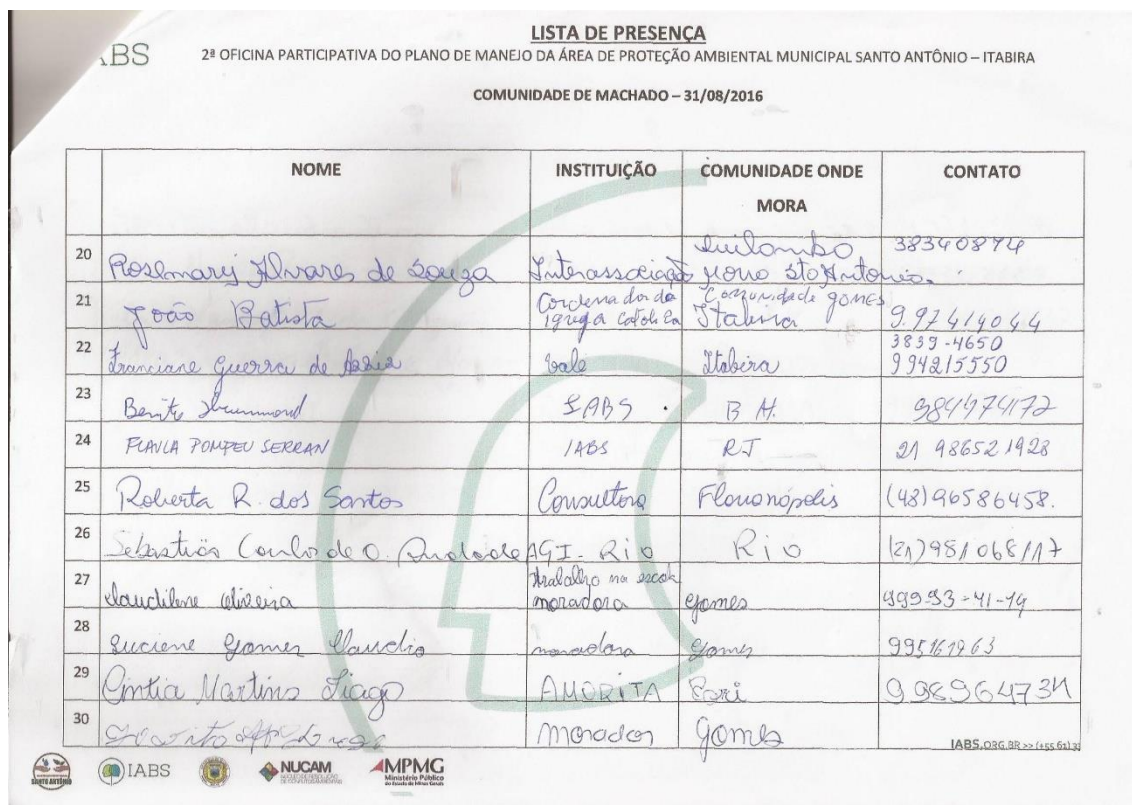 LISTA DE PRESENÇA
IABS
2ª OFICINA PARTICIPATIVA DO PLANO DE MANEJO DA ÁREA DE PROTEÇÃO AMBIENTAL MUNICIPAL SANTO ANTÔNIO – ITABIRA
COMUNIDADE DE MACHADO – 31/08/2016
NOME INSTITUIÇÃO COMUNIDADE ONDE MORA CONTATO
20 Rosemary Alvares de Souza Interassociação Quilombo Morro Sto Antonio. 38340874
21 João Batista Cordenador da igreja catolica Comunidade gomes Itabira 9.97414044
22 Franciane Guerra de Assis Vale Itabira 3839-4650 994215550
23 Benito Drummond IABS B H. 984974172
24 FLAVIA POMPEU SERRAN IABS RJ 21 986521928
25 Roberta R. dos Santos Consultora Florianópolis (48)96586458.
26 Sebastião Carlos de O. Andrade AGI-Rio Rio (21)981068117
27 Claudilene Oliveira trabalho na escola moradora Gomes 99993-41-19
28 Luciene Gomes Claudio moradora Gomes 995161963
29 Cintia Martins Tiago AMORITA 998964734
30 morador Gomes
IABS.ORG.BR >> (+55 61) 33
SANTO ANTÔNIO
IABS
NUCAM
MPMG
Ministério Público
do Estado de Minas Gerais